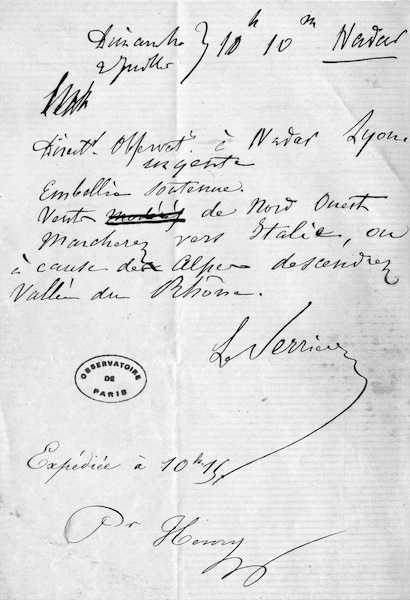 Dimanche } 10h 10m Nadar
2 Juillet
Direct.r Observat. à Nadar Lyon.
urgente
Embellie soutenue.
Vents modérés de Nord Ouest
Marcherez vers Italie, ou
à cause des Alpes descendrez
Vallée du Rhône.
Le Verrier
OBSERVATOIRE
DE
PARIS
Expédiée à 10h 15
Pr Henry